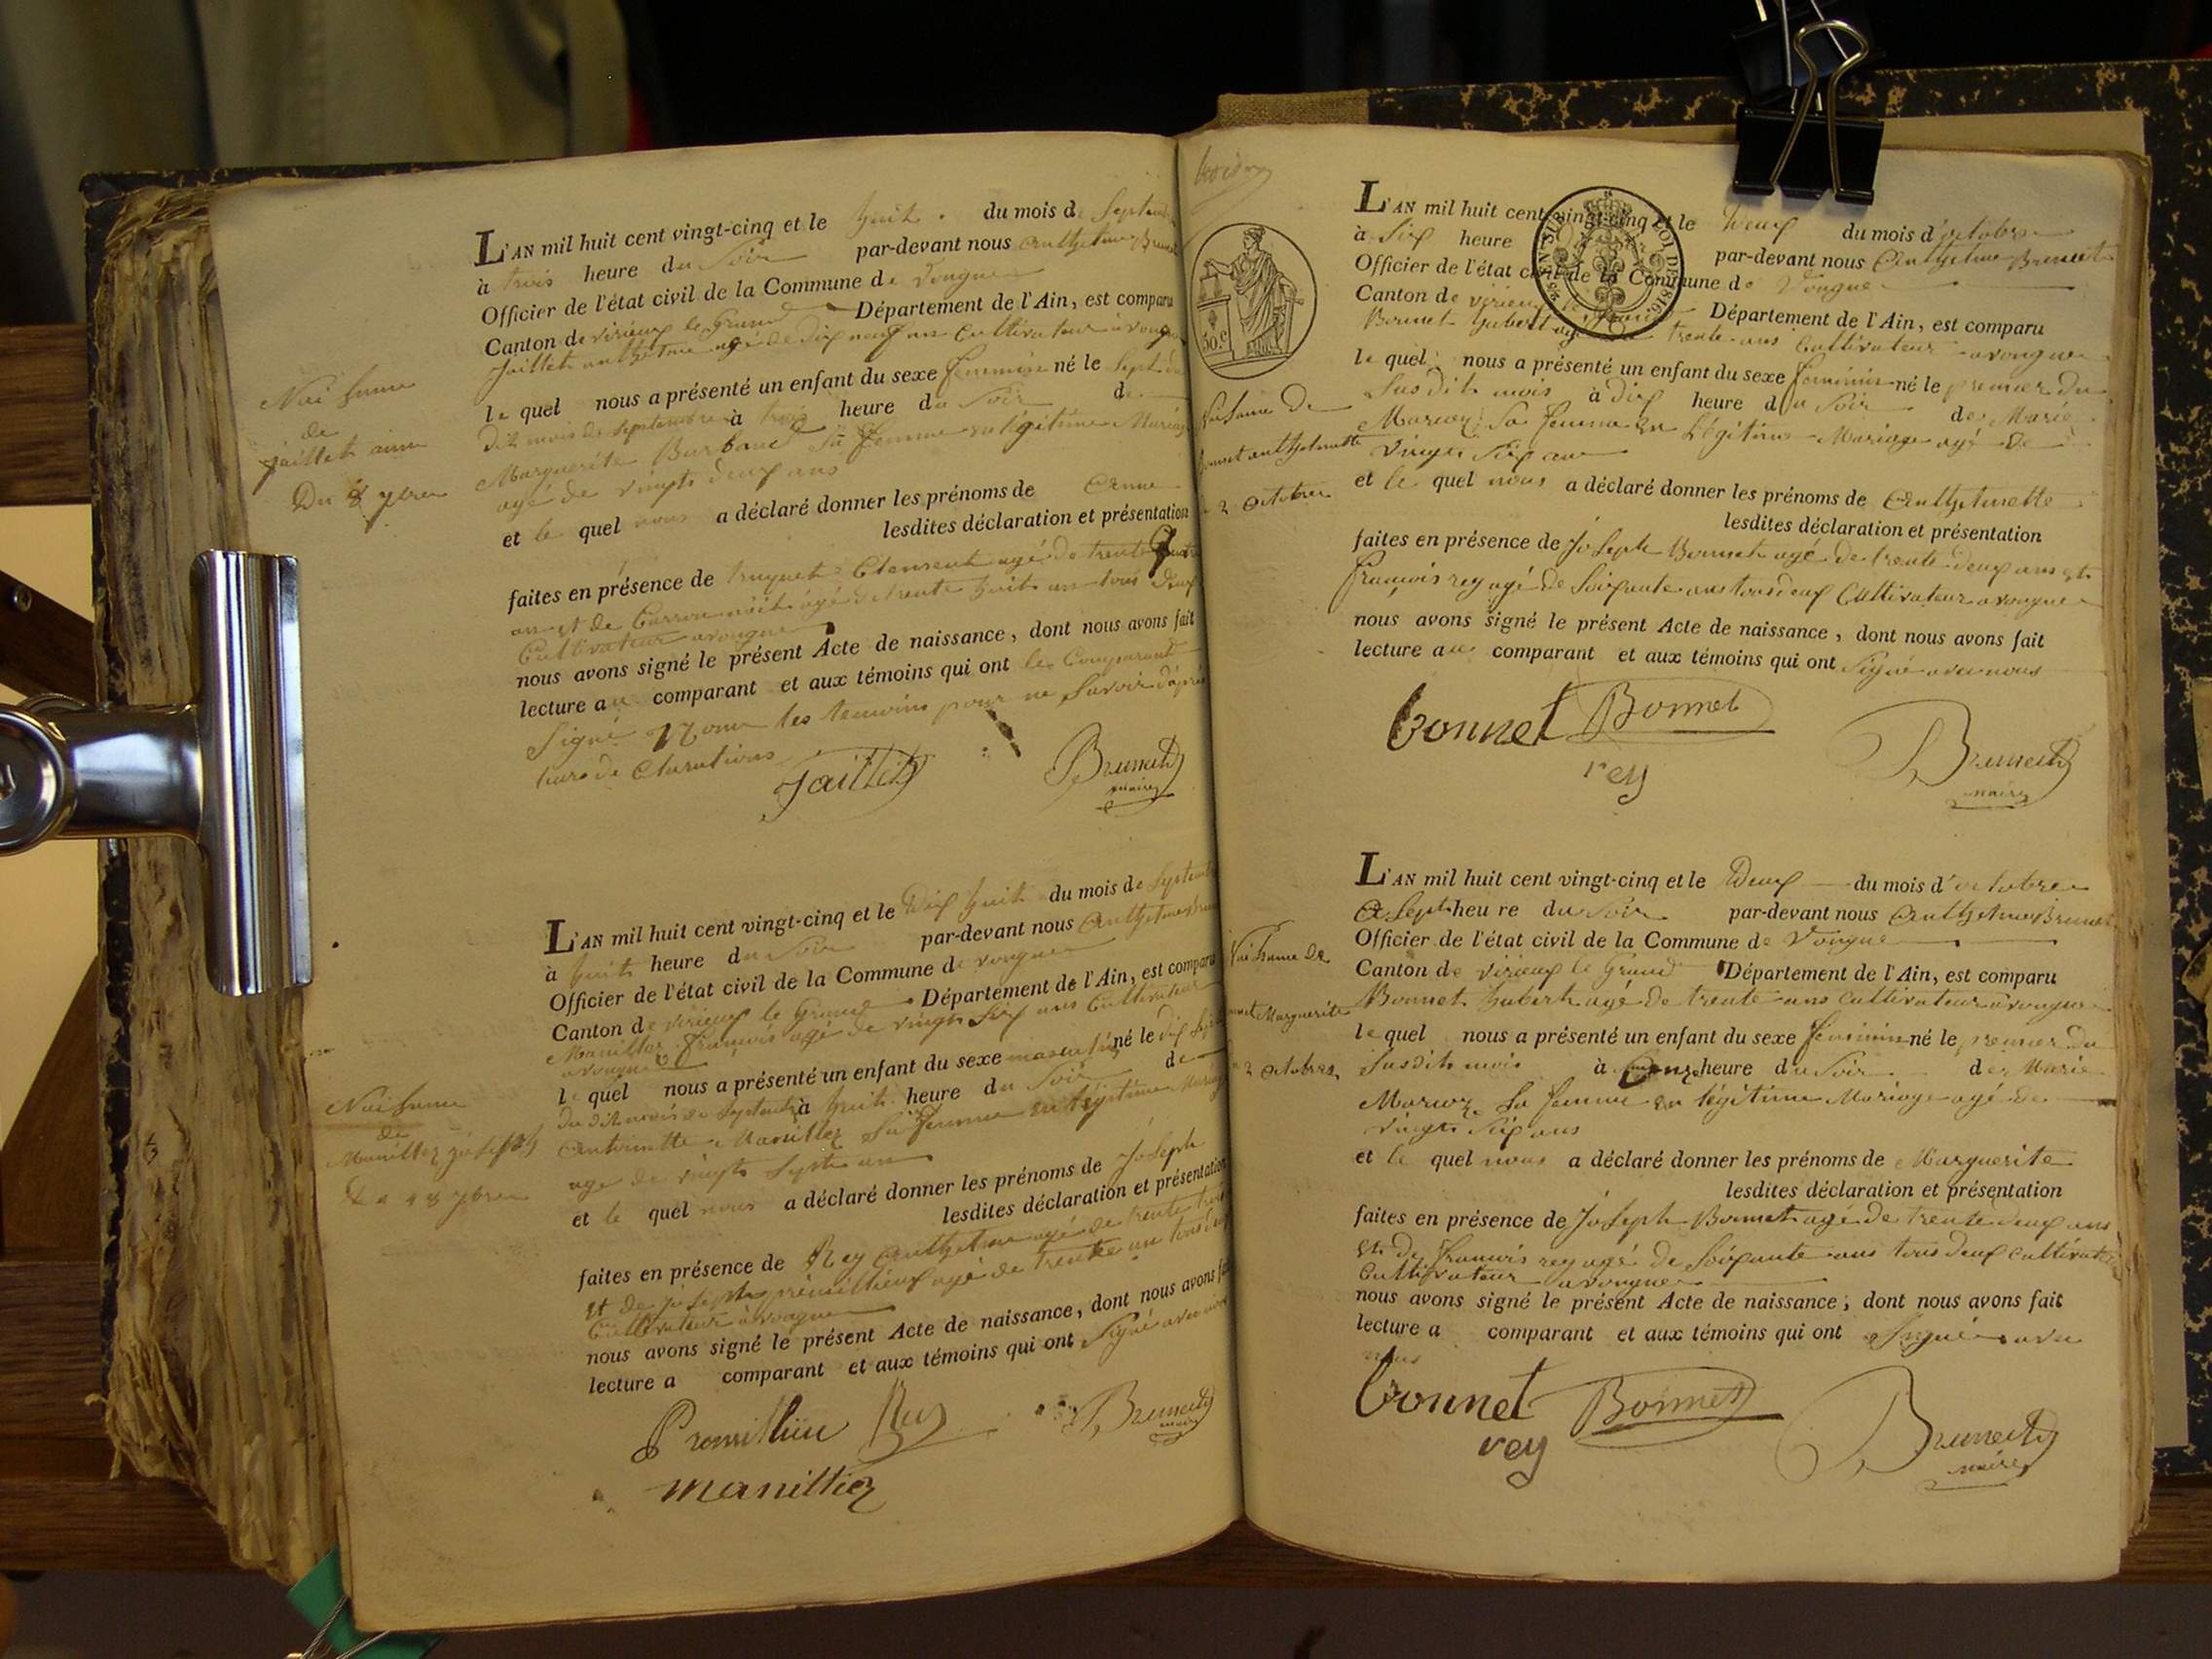 L'AN mil huit cent vingt-cinq et le huit du mois de Septembre
à trois heure du Soir par-devant nous anthelme Brunet
Officier de l'état civil de la Commune de Vongne
Canton de virieux le Grand Département de l'Ain, est comparu
Jaillet anthelme agé de dix neuf ans Cultivateur a vongne
le quel nous a présenté un enfant du sexe feminin né le Sept du
dit mois de Septembre à trois heure du Soir de
Marguerite sa femme en légitime Mariage
agé de vingts deux ans
et le quel nous a déclaré donner les prénoms de anne
lesdites déclaration et présentation
faites en présence de truquet Clement agé de trente quatre
ans et de agé de trente huit ans tous deux
Cultivateur a vongne
nous avons signé le présent Acte de naissance, dont nous avons fait
lecture au comparant et aux témoins qui ont le Comparant
Signé Non les temoins pour ne Savoir d'après
leurs de Clarations
Jaillet Brunet
maire
Naissance
de
jaillet anne
Du 8 7bre
L'AN mil huit cent vingt-cinq et le Dix huit du mois de Septembre
à huit heure du Soir par-devant nous Anthelme Brunet
Officier de l'état civil de la Commune de vongne
Canton de virieux le Grand Département de l'Ain, est comparu
Manillier françois agé de vingts Six ans Cultivateur
a vongne
le quel nous a présenté un enfant du sexe masculin né le dix Sept
du dit mois de Septembre à huit heure du Soir de
Antoinette Manillier Sa femme en légitime Mariage
age de vingts Sept ans
et le quel nous a déclaré donner les prénoms de Joseph
lesdites déclaration et présentation
faites en présence de Rey Anthelme agé de trente trois
et de joseph premillieux agé de trente un tous deux
Cultivateur a vongne
nous avons signé le présent Acte de naissance, dont nous avons fait
lecture a comparant et aux témoins qui ont Signé avec nous
Premillieu Rey Brunet
maire
manillier
Naissance
de
Manillier joseph
Du 18 7bre
50.c
EN SUS
LOI DE 1816
L'AN mil huit cent vingt-cinq et le Deux du mois d'octobre
à Six heure par-devant nous Anthelme Brunet
Officier de l'état civil de la Commune de Vongne
Canton de virieux le Grand Département de l'Ain, est comparu
Bonnet hubert agé de trente ans Cultivateur a vongne
le quel nous a présenté un enfant du sexe feminin né le premier du
Susdit mois à dix heure du Soir de Marie
Sa femme en Légitime Mariage agé de
Vingts Six ans
et le quel nous a déclaré donner les prénoms de Anthelmette
lesdites déclaration et présentation
faites en présence de Joseph Bonnet agé de trente deux ans et
françois rey agé de Soixante ans tous deux Cultivateur a vongne
nous avons signé le présent Acte de naissance, dont nous avons fait
lecture au comparant et aux témoins qui ont Signé avec nous
bonnet Bonnet
rey Brunet
maire
Naissance De
Bonnet anthelmette
2 Octobre
L'AN mil huit cent vingt-cinq et le Deux du mois d'octobre
a Sept heure du Soir par-devant nous Anthelme Brunet
Officier de l'état civil de la Commune de Vongne
Canton de virieux le Grand Département de l'Ain, est comparu
Bonnet hubert agé de trente ans cultivateur a vongne
le quel nous a présenté un enfant du sexe feminin né le premier du
Susdit mois à onze heure du Soir de Marie
Sa femme en légitime Mariage agé de
vingts Six ans
et le quel nous a déclaré donner les prénoms de Marguerite
lesdites déclaration et présentation
faites en présence de Joseph Bonnet agé de trente deux ans
et de françois rey agé de Soixante ans tous deux cultivateur
Cultivateur a vongne
nous avons signé le présent Acte de naissance, dont nous avons fait
lecture a comparant et aux témoins qui ont Signé avec
nous
bonnet Bonnet
rey Brunet
maire
Naissance De
Bonnet Marguerite
2 Octobre